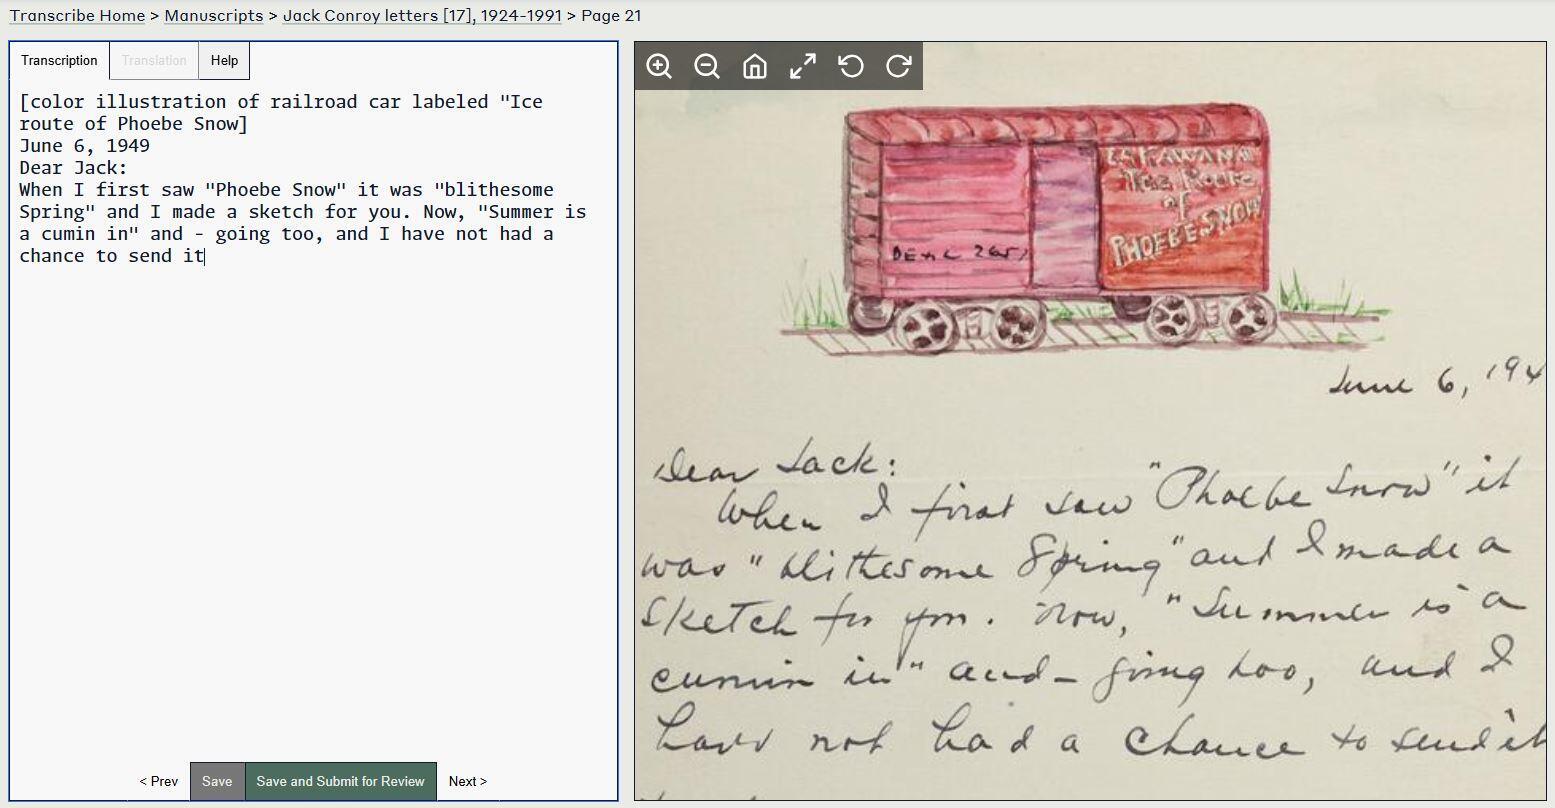 Transcribe Home > Manuscripts > Jack Conroy letters [17], 1924-1991 > Page 21
Transcription
Translation
Help
[color illustration of railroad car labeled "Ice
route of Phoebe Snow]
June 6, 1949
Dear Jack:
When I first saw "Phoebe Snow" it was "blithesome
Spring" and I made a sketch for you. Now, "Summer is
a cumin in" and - going too, and I have not had a
chance to send it
< Prev
Save
Save and Submit for Review
Next >
LAKAWANA
The Route
of
PHOEBE SNOW
June 6, 194
Dear Jack:
When I first saw "Phoebe Snow" it
was "blithesome Spring" and I made a
sketch for you. Now, "Summer is a
cumin in" and - going too, and I
have not had a chance to send it